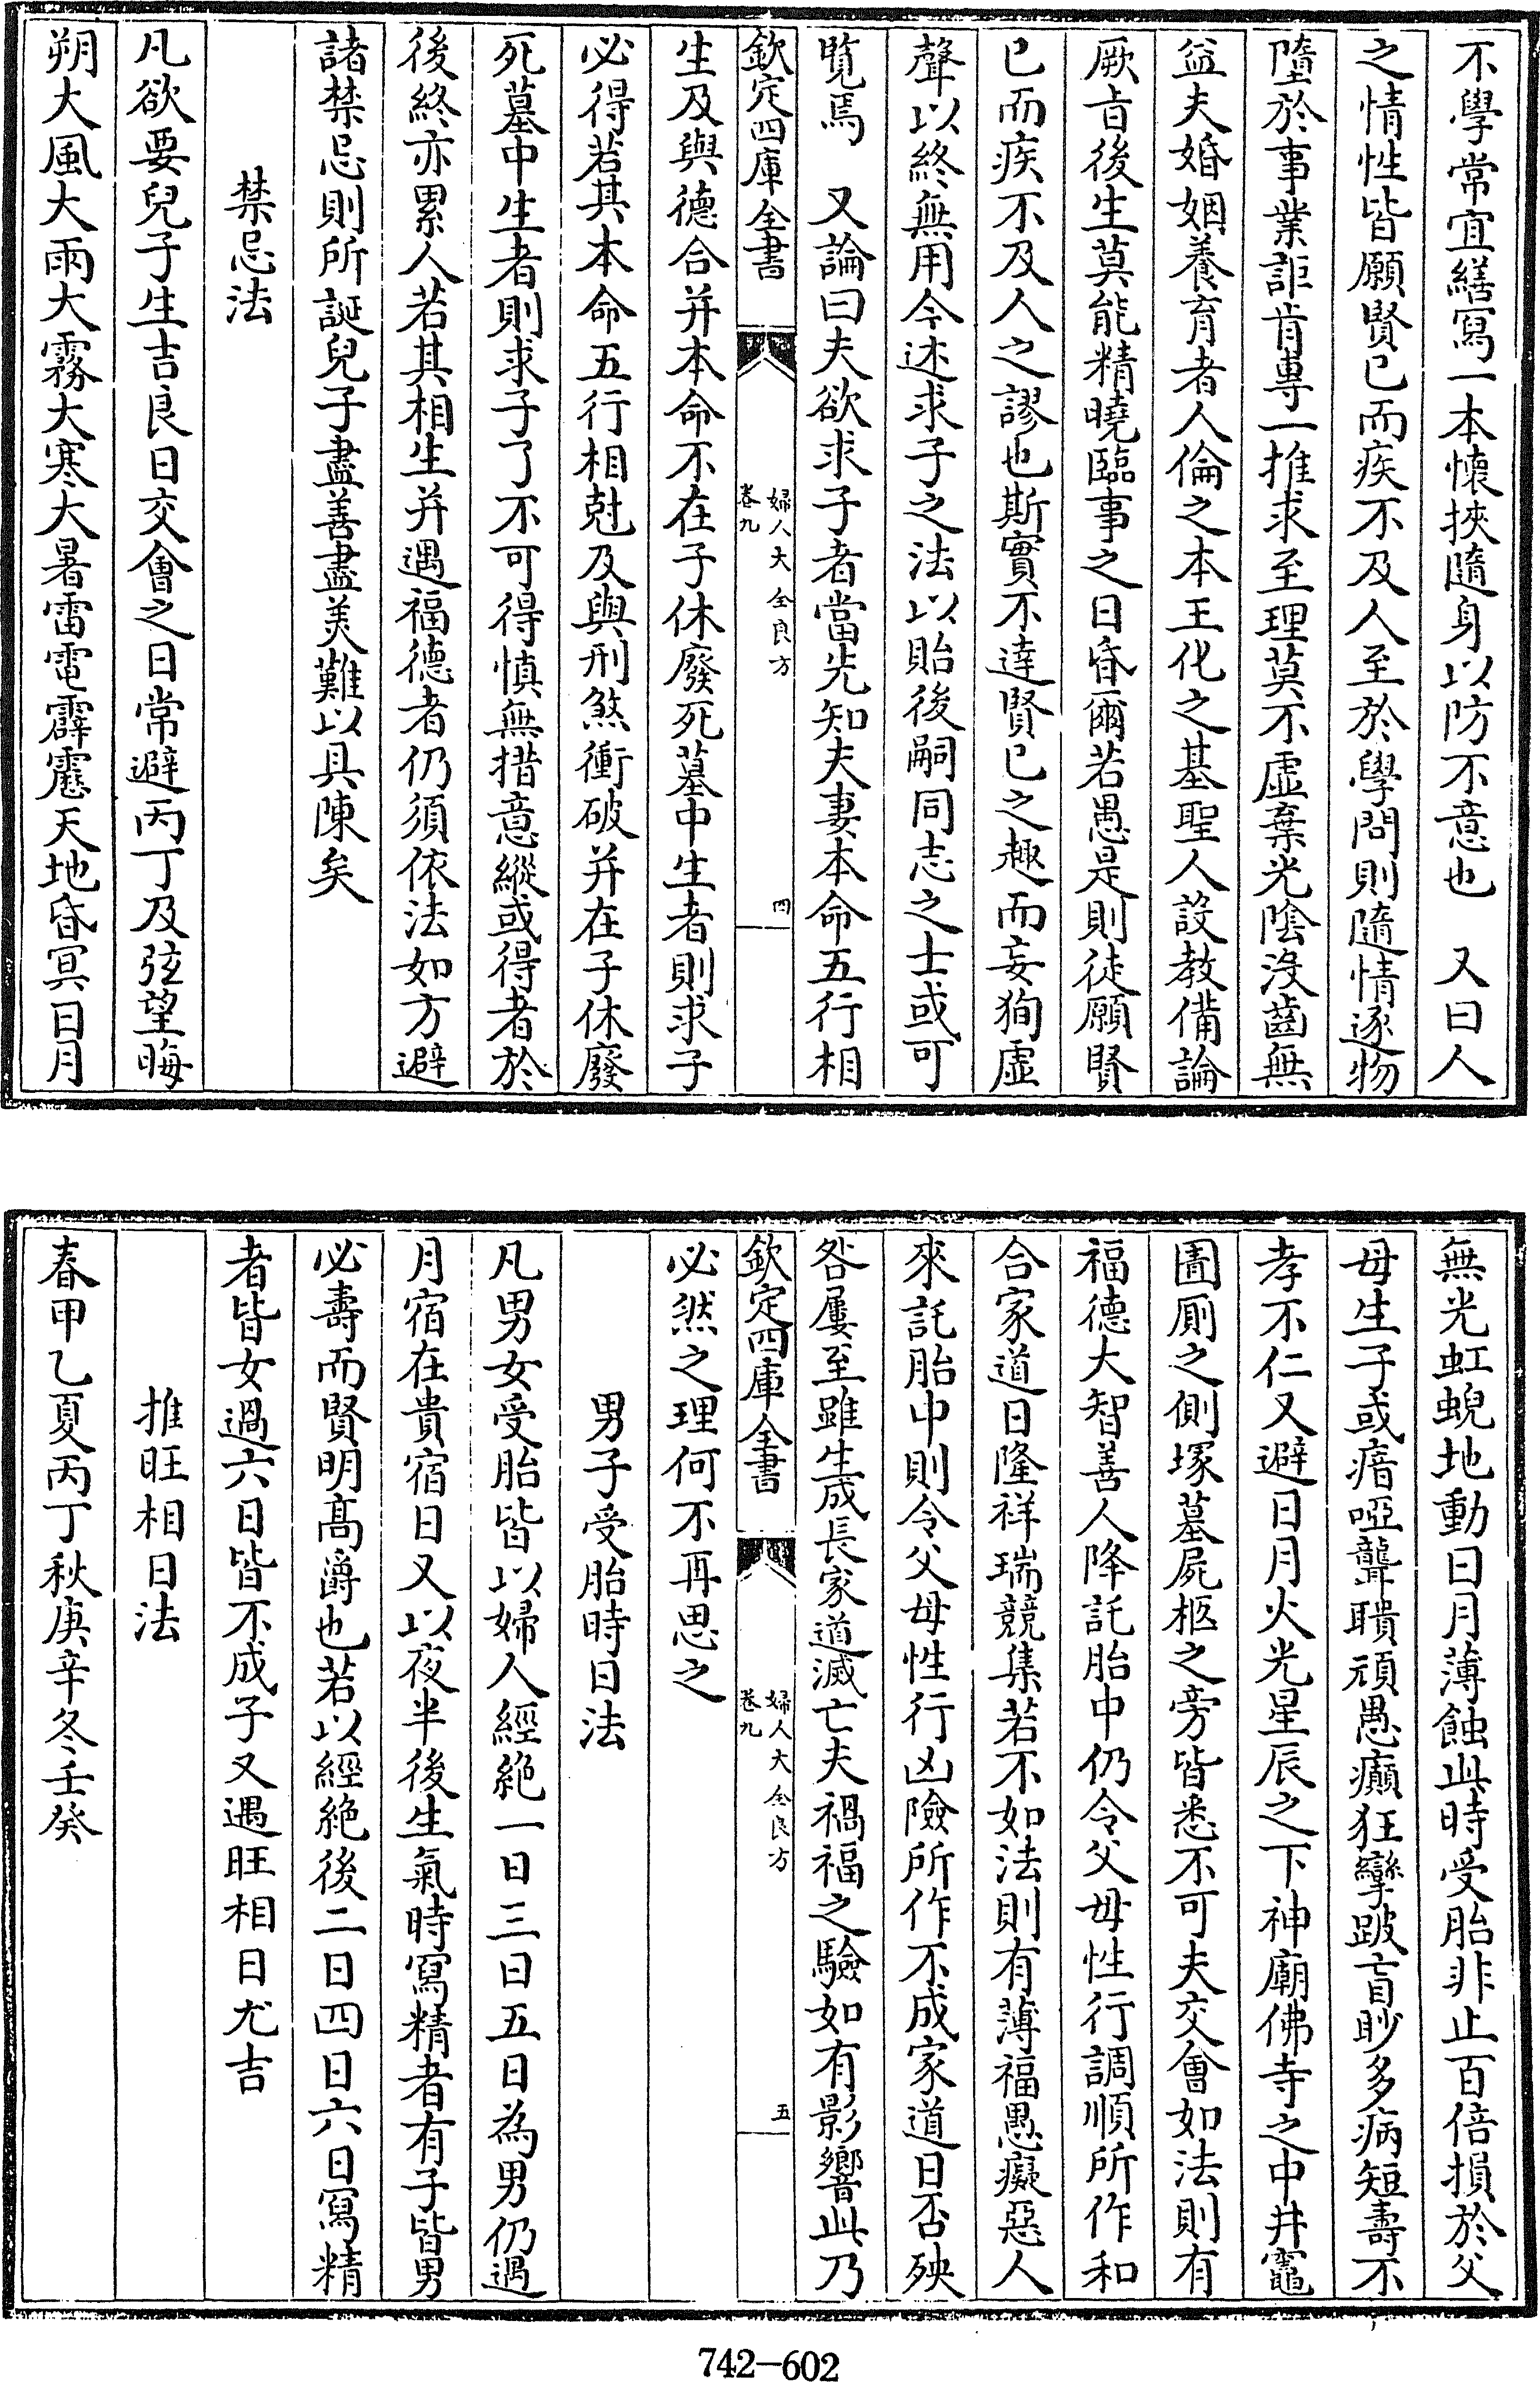 不學常宜繕寫一本懷挾隨身以防不意也　又曰人
之情性皆願賢已而疾不及人至於學問則隨情逐物
墮於事業詎肯專一推求至理莫不虛棄光陰沒齒無
益夫婚姻養育者人倫之本王化之基聖人設教備論
厥旨後生莫能精曉臨事之日昏爾若愚是則徒願賢
已而疾不及人之謬也斯實不達賢已之趣而妄狥虛
聲以終無用今述求子之法以貽後嗣同志之士或可
覧焉　又論曰夫欲求子者當先知夫妻本命五行相
欽定四庫全書　婦人大全良方　卷九　四
生及與德合并本命不在子休廢死墓中生者則求子
必得若其本命五行相尅及與刑煞衝破并在子休廢
死墓中生者則求子了不可得慎無措意縱或得者於
後終亦累人若其相生并遇福德者仍須依法如方避
諸禁忌則所誕兒子盡善盡美難以具陳矣
禁忌法
凡欲要兒子生吉良日交會之日常避丙丁及弦望晦
朔大風大雨大霧大寒大暑雷電霹靂天地昏冥日月
無光虹蜺地動日月薄蝕此時受胎非止百倍損於父
母生子或瘖啞聾聵頑愚癲狂攣跛盲眇多病短壽不
孝不仁又避日月火光星辰之下神廟佛寺之中井竈
圊厠之側塚墓屍柩之旁皆悉不可夫交會如法則有
福德大智善人降託胎中仍令父母性行調順所作和
合家道日隆祥瑞競集若不如法則有薄福愚癡惡人
來託胎中則令父母性行凶險所作不成家道日否殃
咎屢至雖生成長家道滅亡夫禍福之驗如有影響此乃
欽定四庫全書　婦人大全良方　卷九　五
必然之理何不再思之
男子受胎時日法
凡男女受胎皆以婦人經絶一日三日五日為男仍遇
月宿在貴宿日又以夜半後生氣時寫精者有子皆男
必壽而賢明髙爵也若以經絶後二日四日六日寫精
者皆女過六日皆不成子又遇旺相日尤吉
推旺相日法
春甲乙夏丙丁秋庚辛冬壬癸
742-602